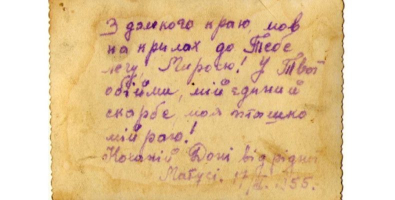 З далекого краю, мов
на крилах до Тебе
лечу, Миросю! У Твої
обійми, мій єдиний
скарбе, моя пташко,
мій раю!
Коханій Доні від рідної
Матусі. 17 55.